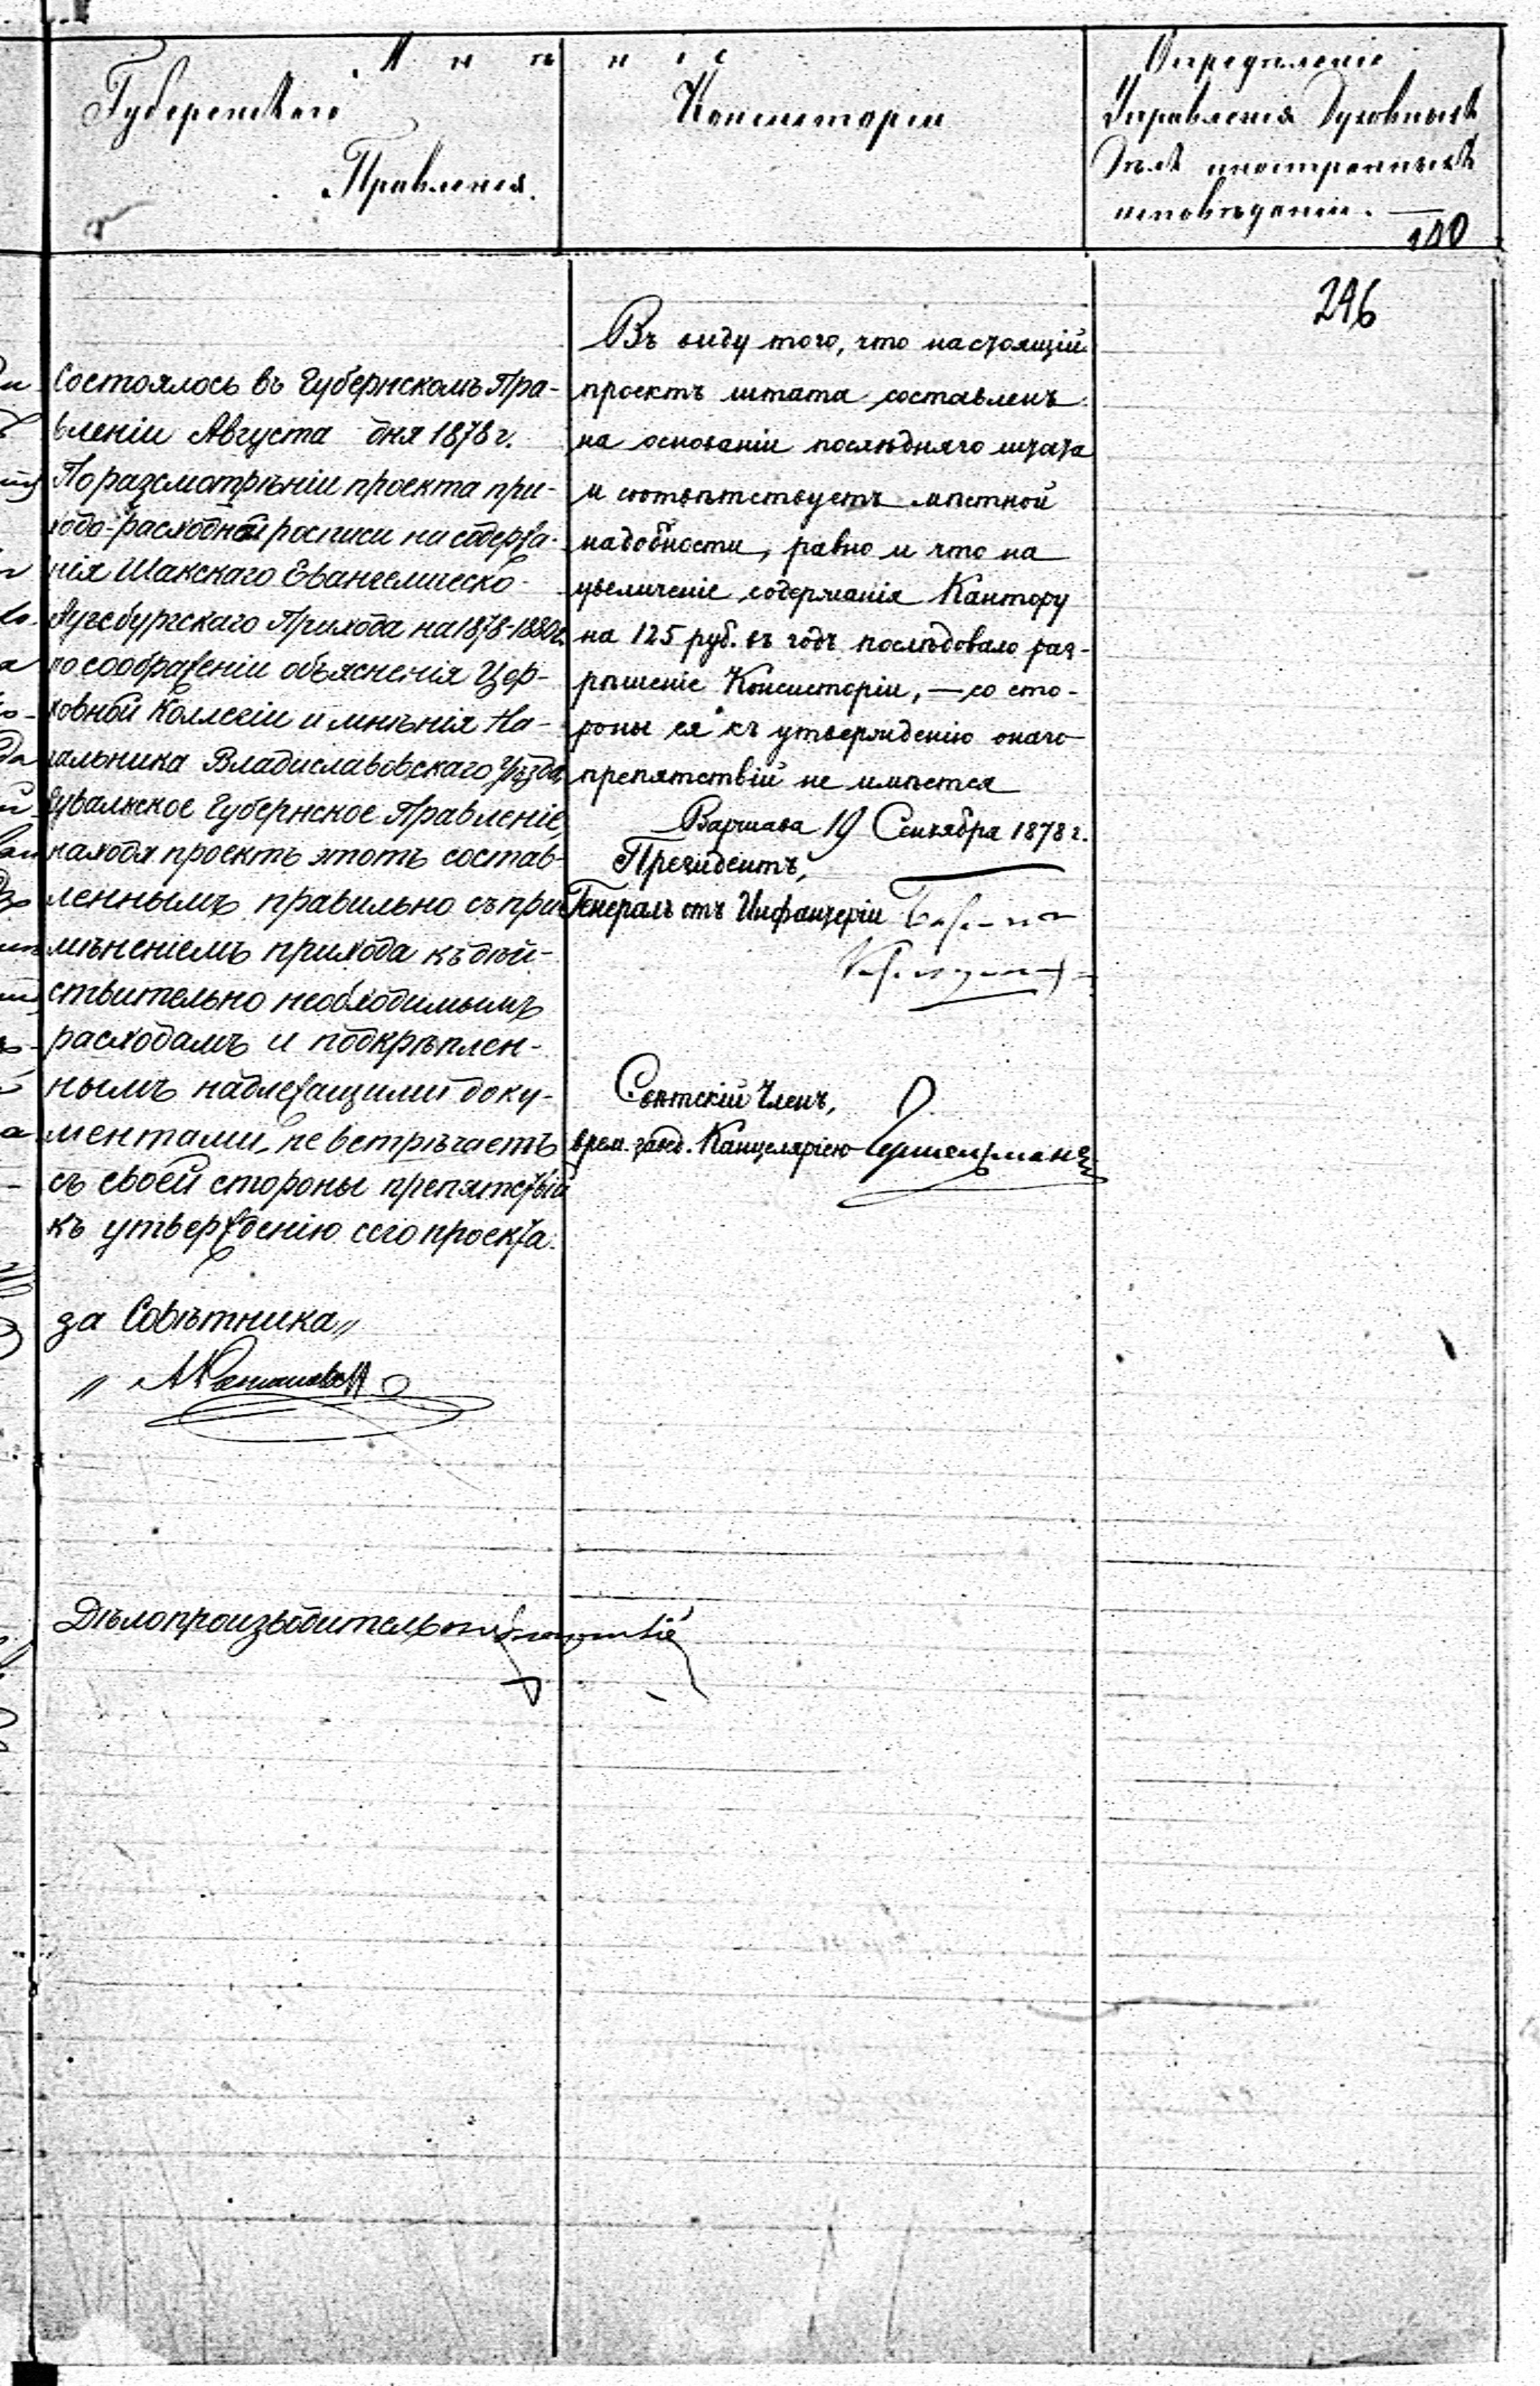 Мнѣніе
Губернскаго
Правленія.
Консисторіи
Опредѣленіе
Управленія Духовныхъ
Дѣлъ иностранныхъ
исповѣданій.
140
246
Состоялось въ Губернскомъ Пра-
вленіи Августа дня 1878 г.
По разсмотрѣніи проекта при-
ходо-расходной росписи на содержа-
нія Шакскаго Евангелическо-
Аугсбургскаго Прихода на 1878-1880 г.
по соображеніи объясненія Цер-
ковной Коллегіи и мнѣнія На-
чальника Владиславовскаго Уѣзда,
Сувалкское Губернское Правленіе
находя проектъ этотъ состав-
леннымъ правильно съ при-
мѣненіемъ прихода къ дѣй-
ствительно необходимымъ
расходамъ и подкрѣплен-
нымъ надлежащими доку-
ментами, не встрѣчаетъ
съ своей стороны препятствій
къ утвержденію сего проекта.
за Совѣтника
Дѣлопроизводитель
Въ виду того, что настоящій
проектъ штата составленъ
на основаніи послѣдняго штата
и соотвѣтствуетъ мѣстной
надобности, равно и что на
увеличеніе содержанія Кантору
на 125 руб. въ годъ послѣдовало раз-
рѣшеніе Консисторіи, — со сто-
роны ея къ утвержденію онаго
препятствій не имѣется
Варшава 19 Сентября 1878 г.
Президентъ,
Генералъ отъ Инфантеріи
Свѣтскій Членъ,
врем. завѣд. Канцеляріею